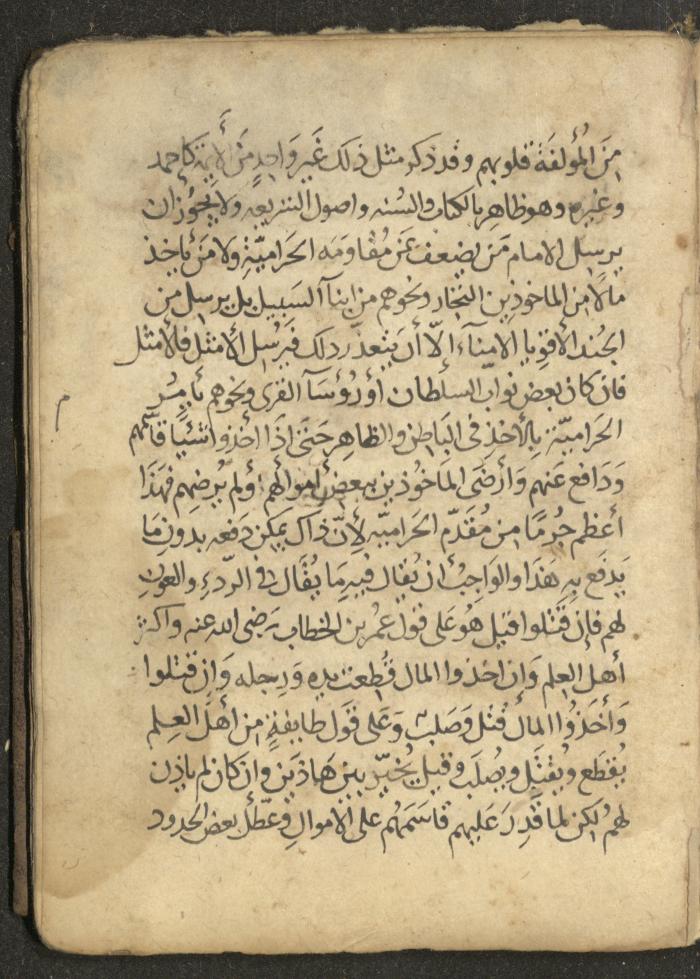 مِنَ الْمُؤلفَة قلوبهم وقد ذكر مثل ذلك غَير وَاحِدٍ مَنَ الأَيمة كاحمد
وغيره وهو ظاهر بالكتاب والسنه واصول الشريعه ولا يجوز ان
يرسل الامام مَن يضعف عَن مُقاومَه الحَراميَّةِ ولا مَن يأخذ
مالا من الماخوذين التجار ونحوهم من ابنآ السَبيل بل يرسل من
الجُند الأقويا الامنآء إلّا أن يتعذّر ذلك فَيُرسُل الأمثل فالأمثل
فان كان بعض نوابّ السلطان أو رُؤسَآ القرى ونحوهم يأمرُ
الحَراميّة بالأخذِ في البَاطِن والظاهِر حَتَى اذَا اخُذوا شيْيا قاسمهم
وَدَافع عَنهم وَأرضَى المَاخُوذين ببعض اموالهم أو لم يُرضِهم فهذا
أعظم جُرمًا من مُقدّم الحَراميه لِأنّ ذاك يمكن دَفعه بدون مَا
يَدفَع بهِ هَذَا والوَاجبُ ان يُقال فيهِ مَا يُقَال في الرّدءِ والعون
لهم فان قَتلوا قتِل هُوَ عَلى قول عمر بن الخطاب رَضى الله عنه واكثر
أهل العِلم وَان اخذوا المال قُطعت يده وَرِجله وَان قتلوا
وَأخَذُوا المالُ قُتل وَصَلب وَعَلى قَول طايفةٍ من أهل العِلم
يُقطَع ويُقتَل ويُصلَب وقيل يُخيّر بين هَاذَين وان كان لم ياذن
لهُم لكِن لما قُدِرَ عَليهم قاسَمَهُم على الاموالِ وَعَطّل بعض الحدود
م